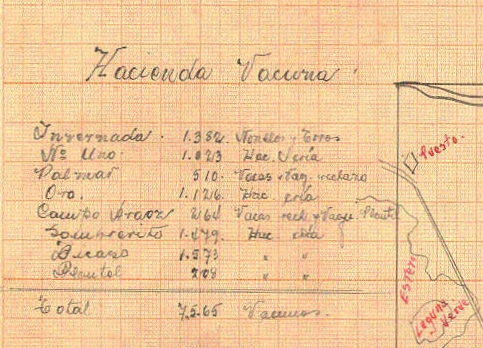 Hacienda Vacuna.
Invernada. 1.382. Novillos y Toros
Nº Uno. 1.023 Hac. Vería
Palmar 510. Vacas y Vaq. rechazo
Oro. 1.126 Hac. cría
Campo Araoz 264 Vacas rech y Vaq.
Sombrerito 1.479. Hac. cría
Bicaco 1.573 " "
208 " "
Total 7.565 Vacunos.
Puesto.
ESTERO
LAGUNA VERDE